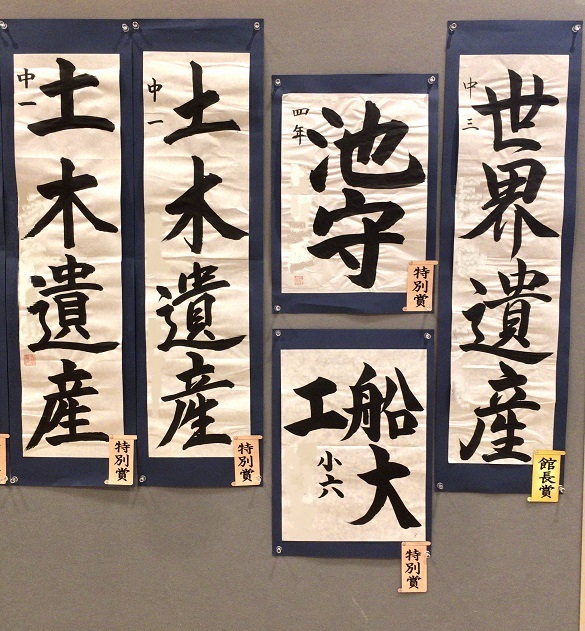 世界遺産
中三
館長賞
池守
四年
特別賞
船大
工
小六
特別賞
土木遺産
中一
特別賞
土木遺産
中一
特別賞